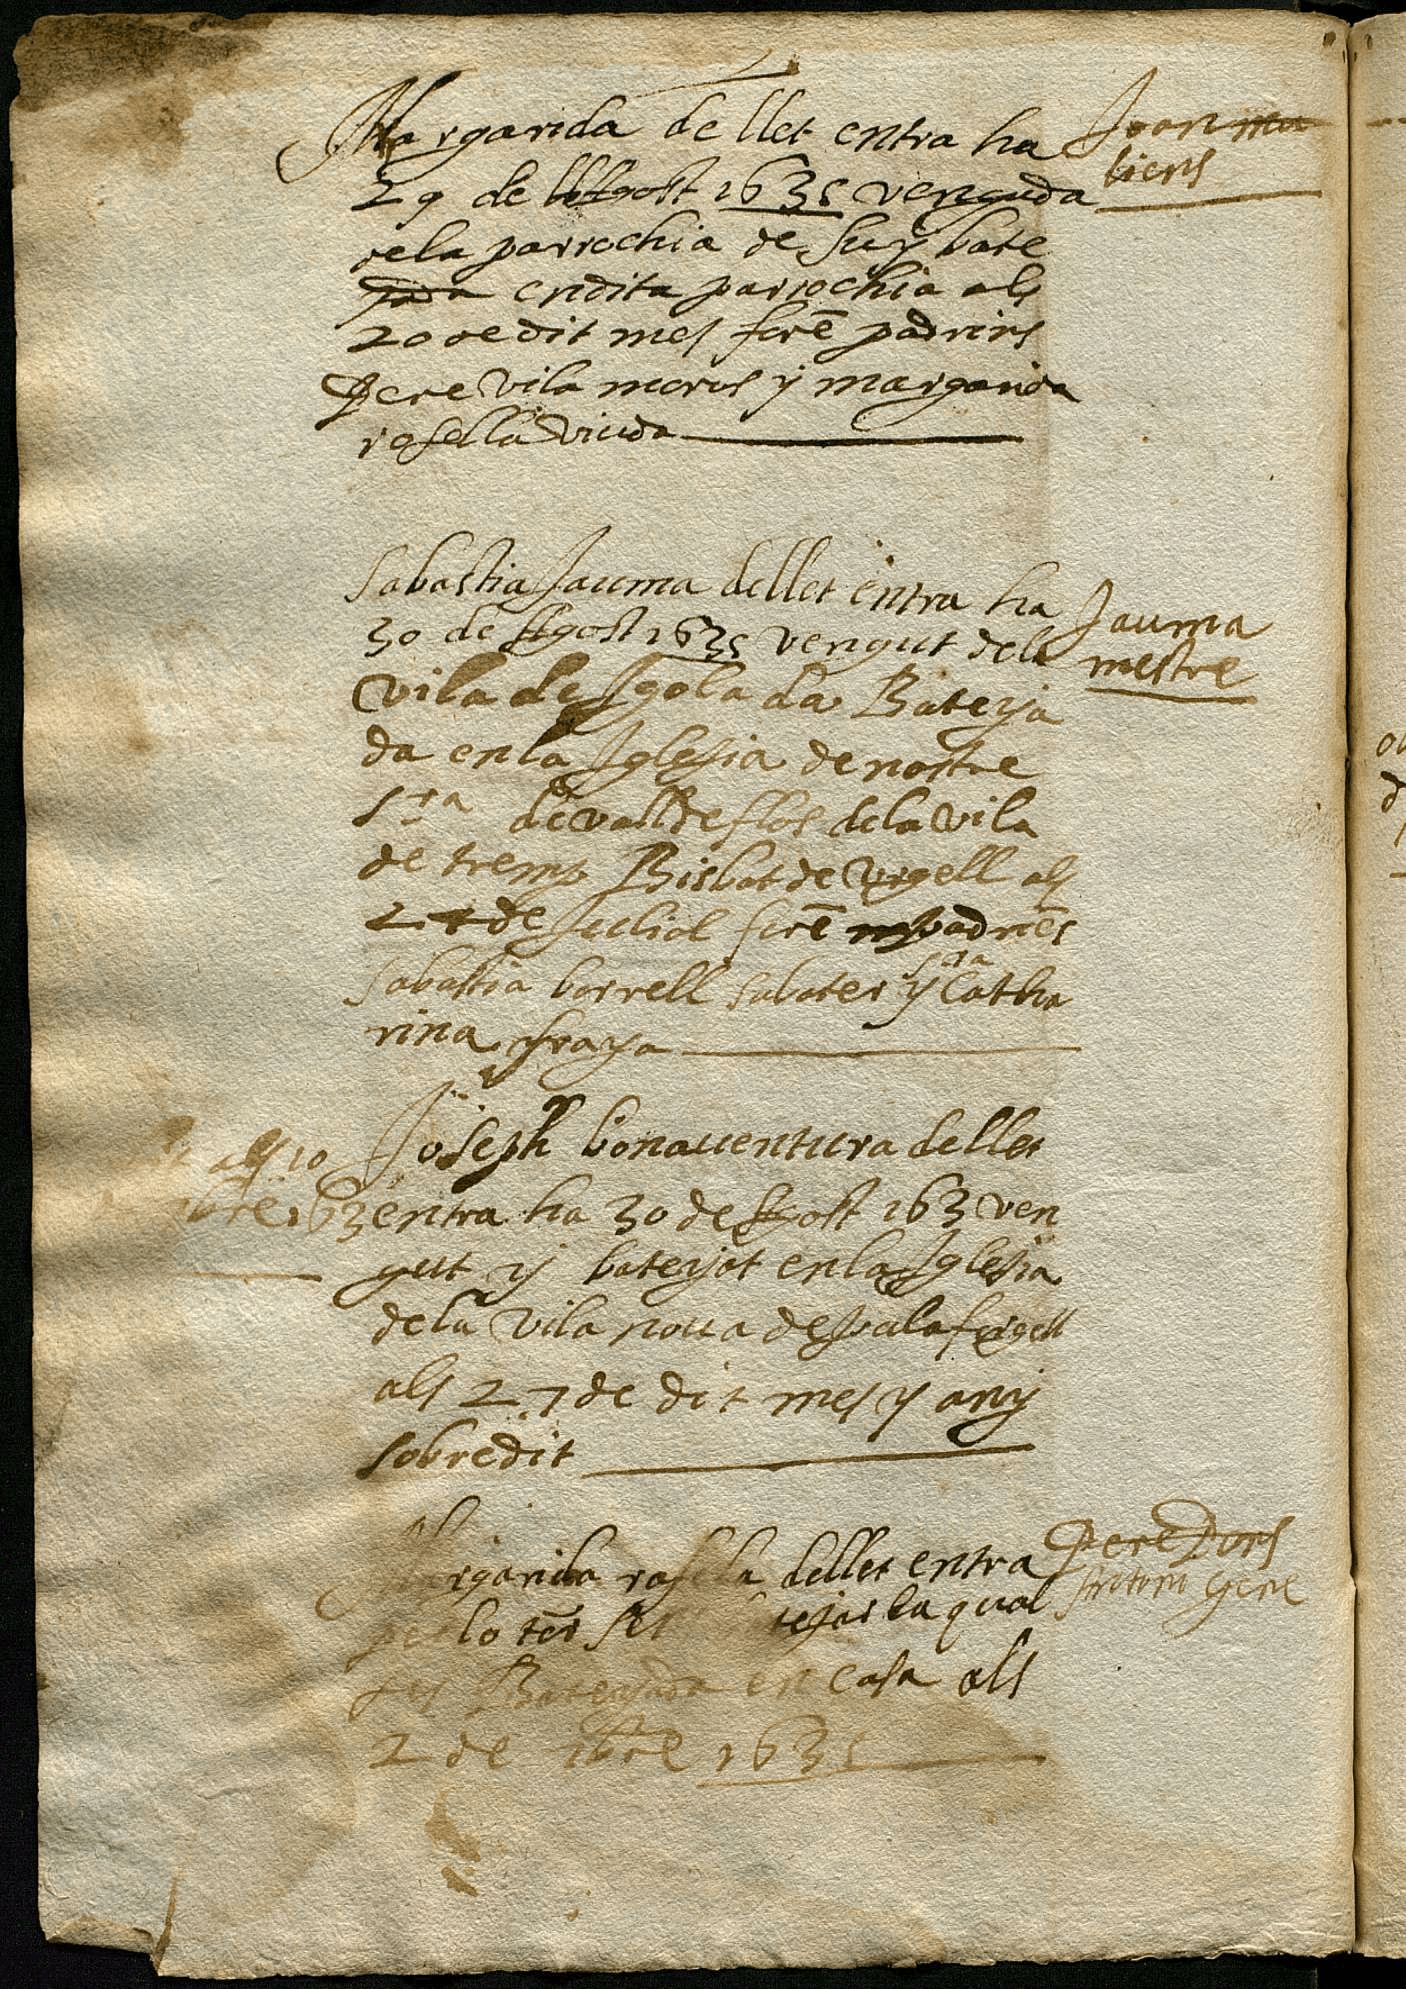 Margarida de llet entra ha
29 de Agost 1635 venguda
de la parrochia de Juy bate
jada en dita parrochia als
20 de dit mes forē padrins
Pere Vila merus y margarida
rosella viuda
Joan ma
tieus
Sabastia Jauma de llet entra ha
30 de Agost 1635 vengut dela
vila de Igolada Bateja
da en la Iglesia de nostre
Sra de valldeflos dela vila
de tremp Bisbat de Vrgell als
24 de Juliol forē padriēs
Sabastia borrell sabater y Sra Catha
rina fraya
Jauma
mestre
als 10
bre 163
Joseph bonauentura de llet
entra ha 30 de Agost 163 ven
gut y batejat en la Iglesia
dela Vila noua de palafurgell
als 27 de dit mes y any
sobredit
Margarida rosella de llet entra
per lo tēs la qual
Batejada en casa als
2 de 7bre 1635
Pere Pons
Antoni